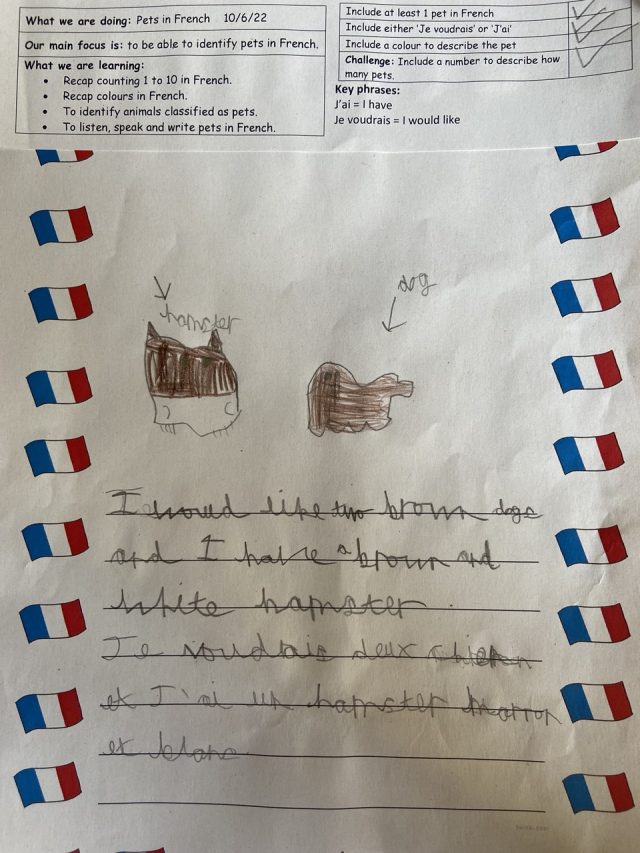 What we are doing: Pets in French 10/6/22
Our main focus is: to be able to identify pets in French.
What we are learning:
• Recap counting 1 to 10 in French.
• Recap colours in French.
• To identify animals classified as pets.
• To listen, speak and write pets in French.
Include at least 1 pet in French
Include either 'Je voudrais' or 'J'ai'
Include a colour to describe the pet
Challenge: Include a number to describe how
many pets.
Key phrases:
J'ai = I have
Je voudrais = I would like
hamster
dog
I would like two brown dogs
and I have a brown and
white hamster
Je voudrais deux chien
et J'ai un hamster marron
et blanc